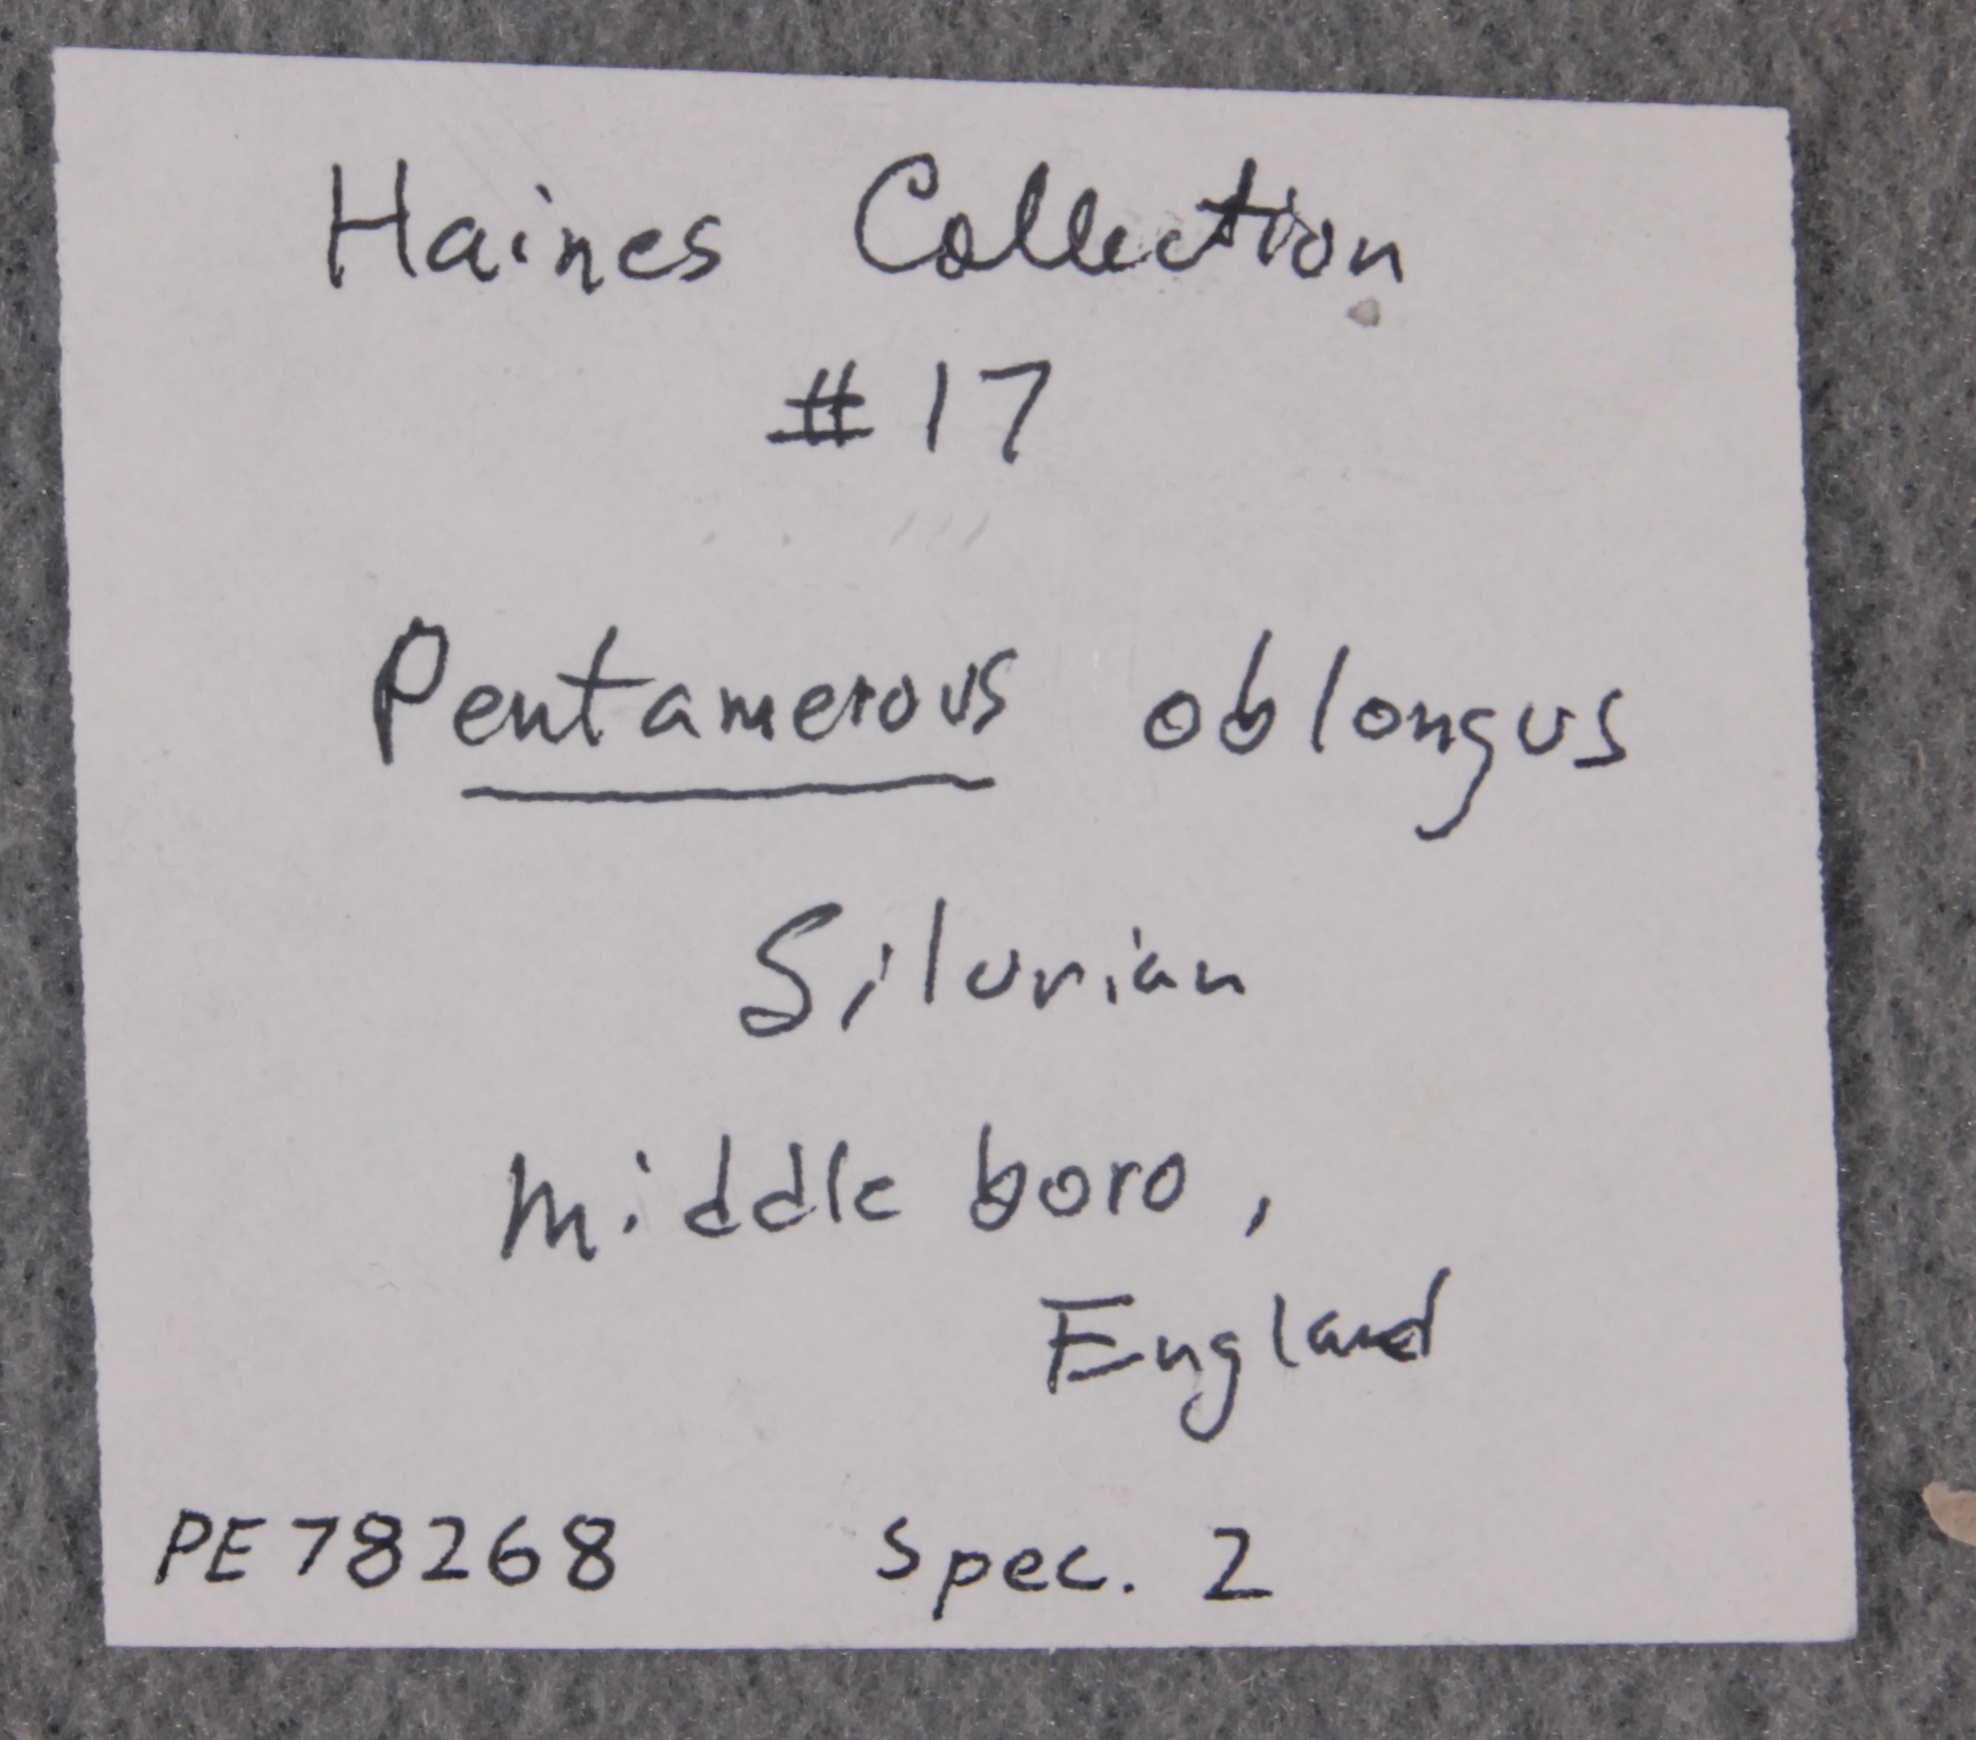 Haines Collection
#17
Pentamerous oblongus
Silurian
Middle boro,
England
PE78268 Spec. 2